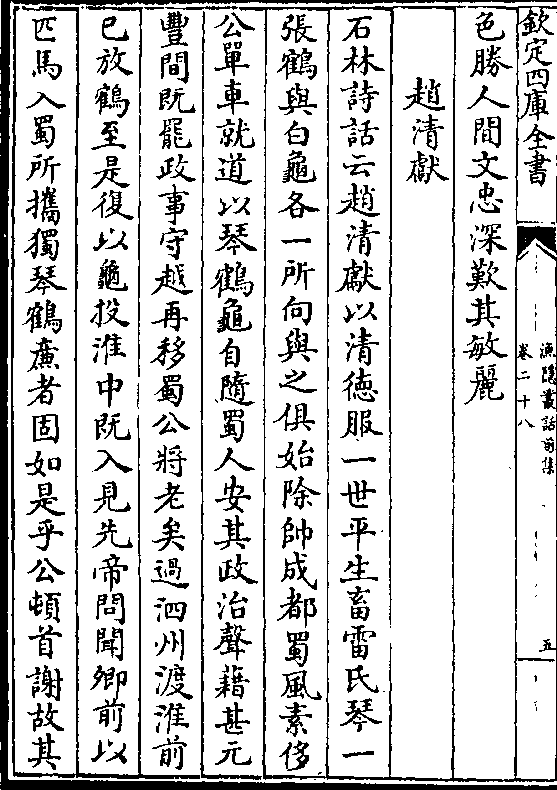 欽定四庫全書
漁隱叢話前集
卷二十八
五
色勝人間文忠深歎其敏麗
趙清獻
石林詩話云趙清獻以清德服一世平生畜雷氏琴一
張鶴與白龜各一所向與之俱始除帥成都蜀風素侈
公單車就道以琴鶴龜自隨蜀人安其政治聲藉甚元
豐間既罷政事守越再移蜀公將老矣過泗州渡淮前
已放鶴至是復以龜投淮中既入見先帝問聞卿前以
匹馬入蜀所攜獨琴鶴㢘者固如是乎公頓首謝故其